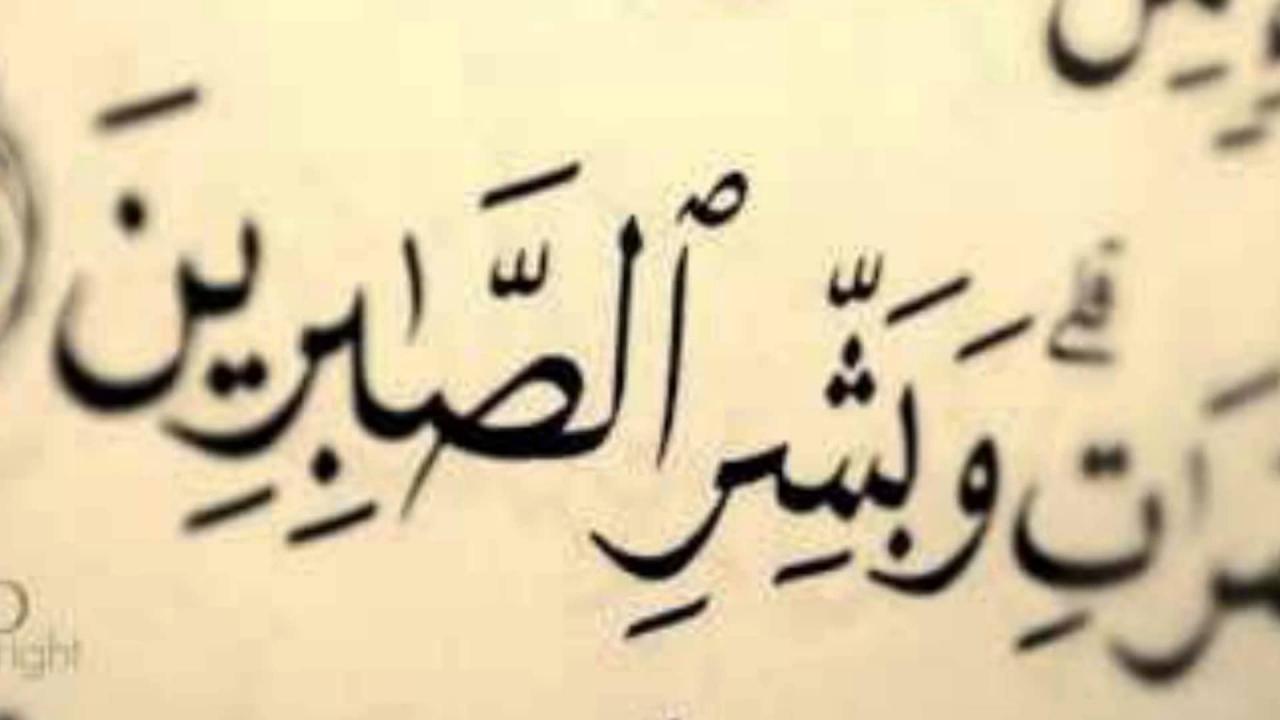 وَبَشِّرِ ٱلصَّـٰبِرِينَ
right